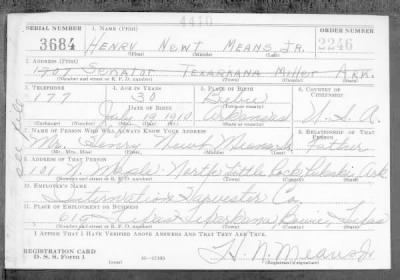 SERIAL NUMBER
1. NAME (Print)
ORDER NUMBER
3684
HENRY NEWT MEANS, JR.
2246
(First) (Middle) (Last)
2. ADDRESS (Print)
1707 SENATOR TEXARKANA MILLER ARK.
(Number and street or R. F. D. number) (Town) (County) (State)
3. TELEPHONE
4. AGE IN YEARS
5. PLACE OF BIRTH
6. COUNTRY OF CITIZENSHIP
177
30
DATE OF BIRTH
July 1910
Arkansas
U. S. A.
(Exchange) (Number)
(Mo.) (Day) (Yr.)
(Town or county)
(State or country)
7. NAME OF PERSON WHO WILL ALWAYS KNOW YOUR ADDRESS
8. RELATIONSHIP OF THAT PERSON
Mr. Henry Newt Means Sr. Father
(Mr., Mrs., Miss) (First) (Middle) (Last)
9. ADDRESS OF THAT PERSON
101 North Little Rock Pulaski Ark
(Number and street or R. F. D. number) (Town) (County) (State)
10. EMPLOYER'S NAME
International Harvester Co.
11. PLACE OF EMPLOYMENT OR BUSINESS
610 Texas Texarkana, Bowie, Texas
(Number and street or R. F. D. number) (Town) (County) (State)
I AFFIRM THAT I HAVE VERIFIED ABOVE ANSWERS AND THAT THEY ARE TRUE.
REGISTRATION CARD
D. S. S. Form 1
(over)
16—17105
H. N. Means Jr
(Registrant's signature)